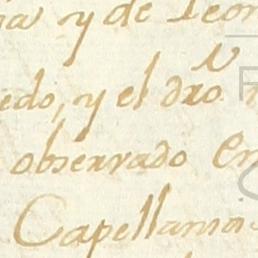 y de Leon
edo, y el dro
observado en
Capellanas